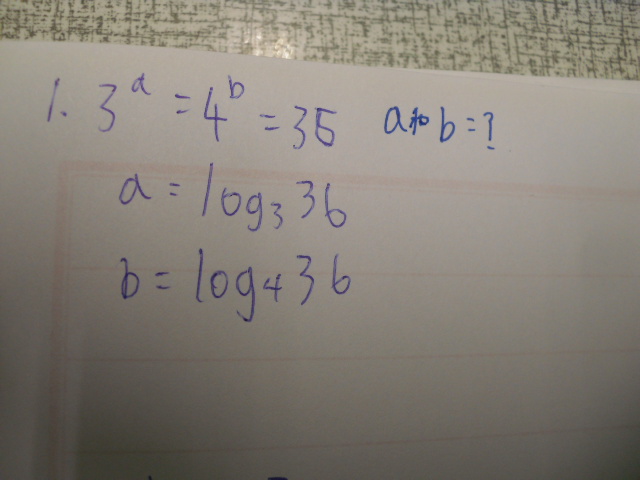 1. 3^a = 4^b = 36 a b = ?
a = log₃ 36
b = log₄ 36